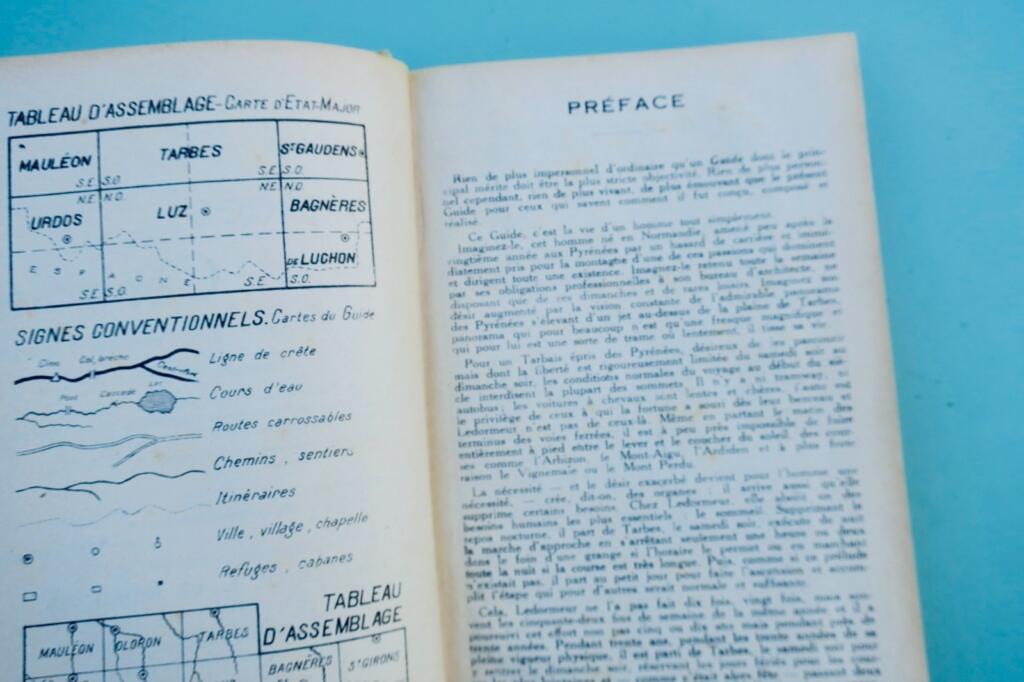 TABLEAU D'ASSEMBLAGE - CARTE D'ÉTAT-MAJOR
MAULÉON TARBES ST GAUDENS
S.E. S.O. S.E. S.O.
N.E. N.O. N.E. N.O.
URDOS LUZ BAGNÈRES
DE LUCHON
ESPAGNE
S.E. S.O. S.E. S.O.
SIGNES CONVENTIONNELS. Cartes du Guide
Cime Col, brèche Contrefort Ligne de crête
Pont Cascade Lac Cours d'eau
Routes carrossables
Chemins, sentiers
Itinéraires
Ville, village, chapelle
Refuges, cabanes
TABLEAU
D'ASSEMBLAGE
MAULÉON OLORON TARBES
BAGNÈRES ST GIRONS
PRÉFACE
Rien de plus impersonnel d'ordinaire qu'un Guide dont le prin-
cipal mérite doit être la plus stricte objectivité. Rien de plus person-
nel cependant, rien de plus vivant, de plus émouvant que le présent
Guide pour ceux qui savent comment il fut conçu, composé et
réalisé.
Ce Guide, c'est la vie d'un homme tout simplement.
Imaginez-le, cet homme né en Normandie, amené peu après la
vingtième année aux Pyrénées par un hasard de carrière et immé-
diatement pris pour la montagne d'une de ces passions qui dominent
et dirigent toute une existence. Imaginez-le retenu toute la semaine
par ses obligations professionnelles à son bureau d'architecte, ne
disposant que de ses dimanches et de rares loisirs. Imaginez son
désir augmenté par la vision constante de l'admirable panorama
des Pyrénées s'élevant d'un jet au-dessus de la plaine de Tarbes,
panorama qui pour beaucoup n'est qu'une fresque magnifique et
qui pour lui est une sorte de trame où lentement, il tisse sa vie.
Pour un Tarbais épris des Pyrénées, désireux de les parcourir
mais dont la liberté est rigoureusement limitée du samedi soir au
dimanche soir, les conditions normales du voyage au début du siè-
cle interdisent la plupart des sommets. Il n'y a ni tramway, ni
autobus; les voitures à chevaux sont lentes et chères; l'auto est
le privilège de ceux à qui la fortune a souri dès leur berceau et
Ledormeur n'est pas de ceux-là. Même en partant le matin des
terminus des voies ferrées, il est à peu près impossible de faire
entièrement à pied entre le lever et le coucher du soleil, des cour-
ses comme l'Arbizon, le Mont-Aigu, l'Ardiden et à plus forte
raison le Vignemale ou le Mont Perdu.
La nécessité — et le désir exacerbé devient pour l'homme une
nécessité, — crée, dit-on, des organes; il arrive aussi qu'elle
supprime certains besoins. Chez Ledormeur, elle abolit un des
besoins humains les plus essentiels: le sommeil. Supprimant le
repos nocturne, il part de Tarbes, le samedi soir, exécute de nuit
la marche d'approche en s'arrêtant seulement une heure ou deux
dans le foin d'une grange si l'horaire le permet ou en marchant
toute la nuit si la course est très longue. Puis, comme si ce prélude
n'existait pas, il part au petit jour pour faire l'ascension et accom-
plit l'étape qui pour d'autres serait normale et suffisante.
Cela, Ledormeur ne l'a pas fait dix fois, vingt fois, mais sou-
vent les cinquante-deux fins de semaine de la même année et il a
poursuivi cet effort non pas cinq ou dix ans mais pendant près de
trente années. Pendant trente ans, pendant les trente années de sa
pleine vigueur physique, il est parti de Tarbes, le samedi soir pour
y rentrer le dimanche soir, réservant les jours fériés pour les cour-